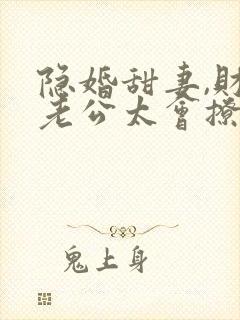 隐婚甜妻,财
老公太会撩
鬼上身